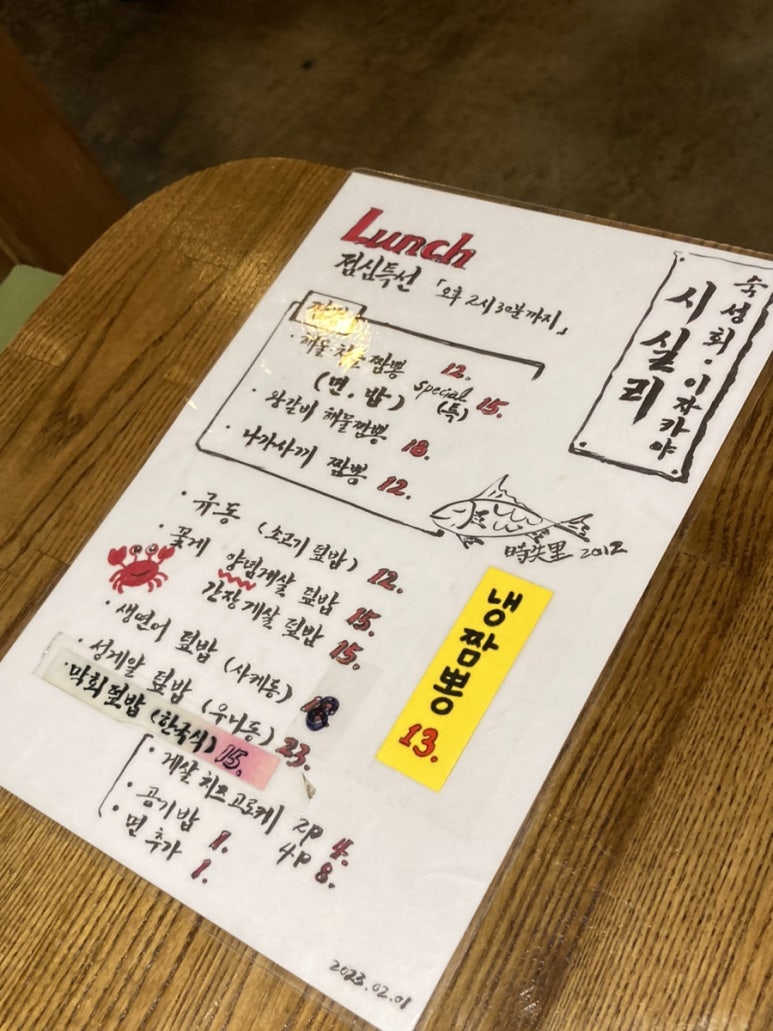 Lunch
점심특선 「오후 2시 30분까지」
숙성회·이자카야
시실리
짬뽕
· 해물·차돌 짬뽕 12.
(면, 밥) special (특) 15.
· 왕갈비 해물짬뽕 18.
· 나가사끼 짬뽕 12.
時失里 2012
· 규동 (소고기 덮밥) 12.
· 꽃게 양념게살 덮밥 15.
간장게살 덮밥 15.
· 생연어 덮밥 (사케동) 18
· 성게알 덮밥 (우니동) 23.
· 막회덮밥 (한국식) 15.
냉짬뽕
13.
· 게살 치즈 고로케 2p 4.
4p 8.
· 공기밥 1.
· 면 추가 1.
2023.02.01